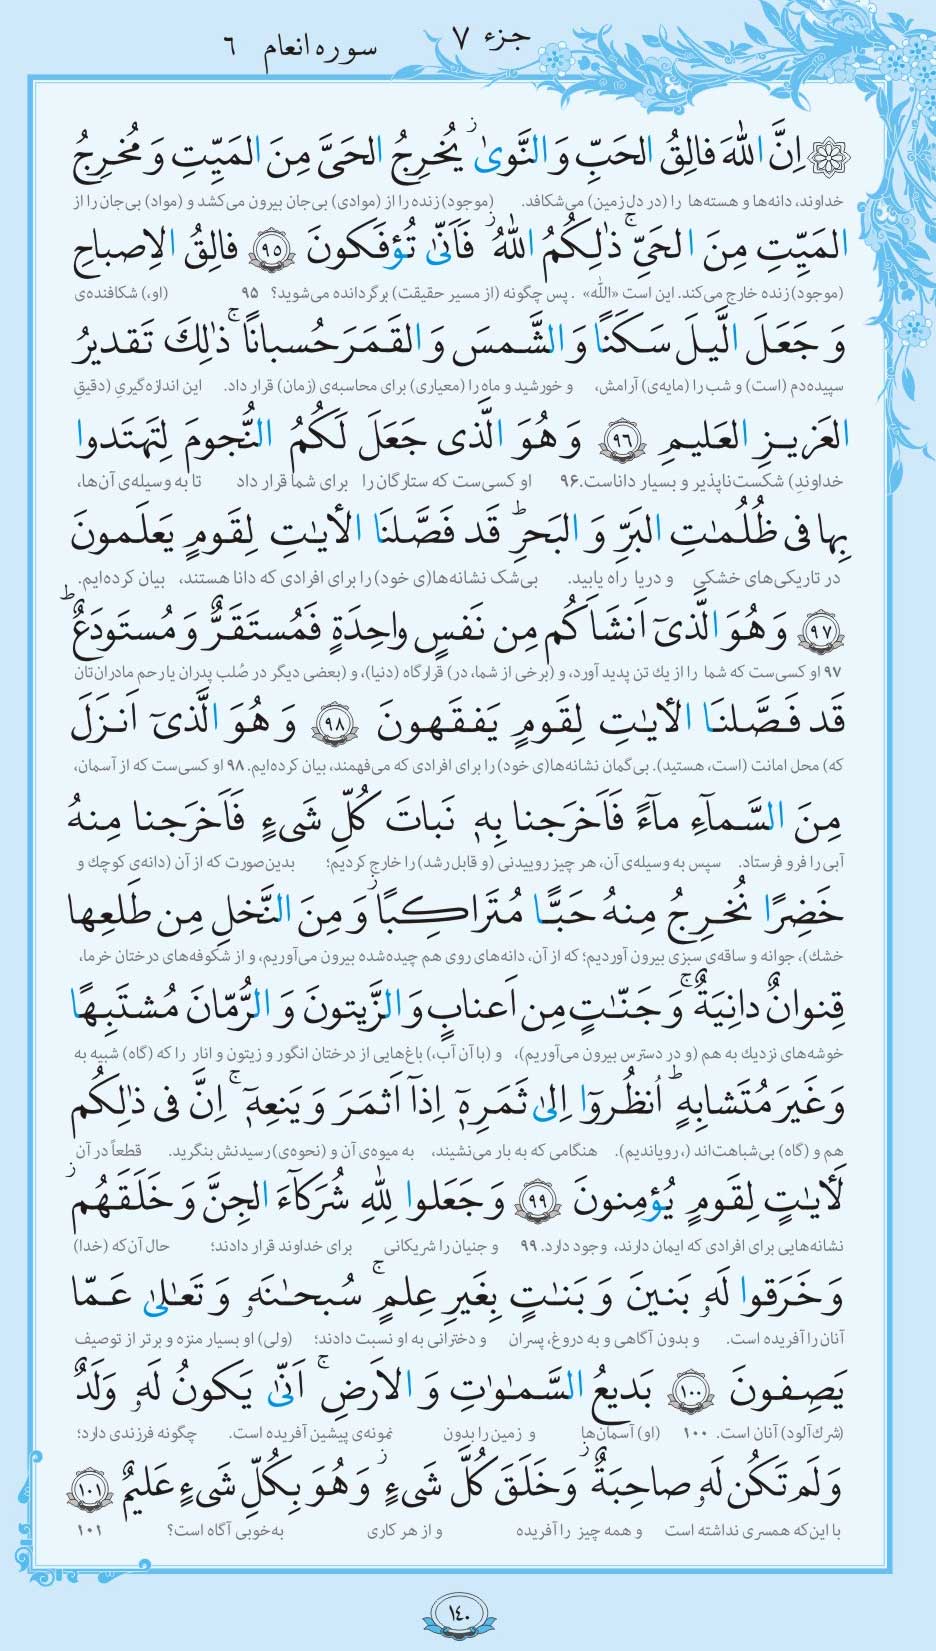 جزء ۷
سوره انعام ۶
اِنَّ اللّٰهَ فالِقُ الحَبِّ وَ النَّوىٰ ز يُخرِجُ الحَىَّ مِنَ المَيِّتِ وَ مُخرِجُ
خداوند، دانه‌ها و هسته‌ها را (در دل زمین) می‌شکافد. (موجود) زنده را از (موادی) بی‌جان بیرون می‌کشد و (مواد) بی‌جان را از
المَيِّتِ مِنَ الحَىِّ ج ذٰلِكُمُ اللّٰهُ ز فَاَنّىٰ تُؤفَكونَ ۹۵ فالِقُ الاِصباحِ
(موجود) زنده خارج می‌کند. این است «الله». پس چگونه (از مسیر حقیقت) برگردانده می‌شوید؟ ۹۵ (او،) شکافنده‌ی
وَ جَعَلَ الَّيلَ سَكَنًا وَ الشَّمسَ وَ القَمَرَ حُسبانًا ج ذٰلِكَ تَقديرُ
سپیده‌دم (است) و شب را (مایه‌ی) آرامش، و خورشید و ماه را (معیاری) برای محاسبه‌ی (زمان) قرار داد. این اندازه‌گیریِ (دقیقِ
العَزيزِ العَليمِ ۹۶ وَ هُوَ الَّذى جَعَلَ لَكُمُ النُّجومَ لِتَهتَدوا
خداوندِ) شکست‌ناپذیر و بسیار داناست.۹۶ او کسی‌ست که ستارگان را برای شما قرار داد تا به وسیله‌ی آن‌ها،
بِها فى ظُلُمٰتِ البَرِّ وَ البَحرِ ط قَد فَصَّلنَا الأيٰتِ لِقَومٍ يَعلَمونَ
در تاریکی‌های خشکی و دریا راه یابید. بی‌شک نشانه‌ها(ی خود) را برای افرادی که دانا هستند، بیان کرده‌ایم.
۹۷ وَ هُوَ الَّذىٓ اَنشَاَكُم مِن نَفسٍ واحِدَةٍ فَمُستَقَرٌّ وَ مُستَودَعٌ ط
۹۷ او کسی‌ست که شما را از یك تن پدید آورد، و (برخی از شما، در) قرارگاه (دنیا)، و (بعضی دیگر در صُلب پدران یا رحم مادران‌تان
قَد فَصَّلنَا الأيٰتِ لِقَومٍ يَفقَهونَ ۹۸ وَ هُوَ الَّذىٓ اَنزَلَ
که) محل امانت (است، هستید). بی‌گمان نشانه‌ها(ی خود) را برای افرادی که می‌فهمند، بیان کرده‌ایم. ۹۸ او کسی‌ست که از آسمان،
مِنَ السَّمآءِ مآءً فَاَخرَجنا بِهٖ نَباتَ كُلِّ شَىءٍ فَاَخرَجنا مِنهُ
آبی را فرو فرستاد. سپس به وسیله‌ی آن، هر چیز روییدنی (و قابل رشد) را خارج کردیم؛ بدین‌صورت که از آن (دانه‌ی کوچك و
خَضِرًا نُخرِجُ مِنهُ حَبًّا مُتَراكِبًا ز وَ مِنَ النَّخلِ مِن طَلعِها
خشك)، جوانه و ساقه‌ی سبزی بیرون آوردیم؛ که از آن، دانه‌های روی هم چیده‌شده بیرون می‌آوریم، و از شکوفه‌های درختان خرما،
قِنوانٌ دانِيَةٌ ج وَ جَنّٰتٍ مِن اَعنابٍ وَ الزَّيتونَ وَ الرُّمّانَ مُشتَبِهًا
خوشه‌های نزدیك به هم (و در دسترس بیرون می‌آوریم)، و (با آن آب،) باغ‌هایی از درختان انگور و زیتون و انار را که (گاه) شبیه به
وَ غَيرَ مُتَشابِهٍ ط اُنظُروٓا اِلىٰ ثَمَرِهٖٓ اِذآ اَثمَرَ وَ يَنعِهٖٓ ج اِنَّ فى ذٰلِكُم
هم و (گاه) بی‌شباهت‌اند (، رویاندیم). هنگامی که به بار می‌نشیند، به میوه‌ی آن و (نحوه‌ی) رسیدنش بنگرید. قطعاً در آن
لَأيٰتٍ لِقَومٍ يُؤمِنونَ ۹۹ وَ جَعَلوا لِلّٰهِ شُرَكآءَ الجِنَّ وَ خَلَقَهُم ز
نشانه‌هایی برای افرادی که ایمان دارند، وجود دارد. ۹۹ و جنیان را شریکانی برای خداوند قرار دادند؛ حال آن‌که (خدا)
وَ خَرَقوا لَهٗ بَنينَ وَ بَناتٍ بِغَيرِ عِلمٍ ج سُبحٰنَهٗ وَ تَعالىٰ عَمّا
آنان را آفریده است. و بدون آگاهی و به دروغ، پسران و دخترانی به او نسبت دادند؛ (ولی) او بسیار منزه و برتر از توصیف
يَصِفونَ ۱۰۰ بَديعُ السَّمٰوٰتِ وَ الاَرضِ ج اَنّىٰ يَكونُ لَهٗ وَلَدٌ
(شرك‌آلود) آنان است. ۱۰۰ (او) آسمان‌ها و زمین را بدون نمونه‌ی پیشین آفریده است. چگونه فرزندی دارد؛
وَ لَم تَكُن لَهٗ صاحِبَةٌ ز وَ خَلَقَ كُلَّ شَىءٍ ز وَ هُوَ بِكُلِّ شَىءٍ عَليمٌ ۱۰۱
با این‌که همسری نداشته است و همه چیز را آفریده و از هر کاری به‌خوبی آگاه است؟ ۱۰۱
۱۴۰